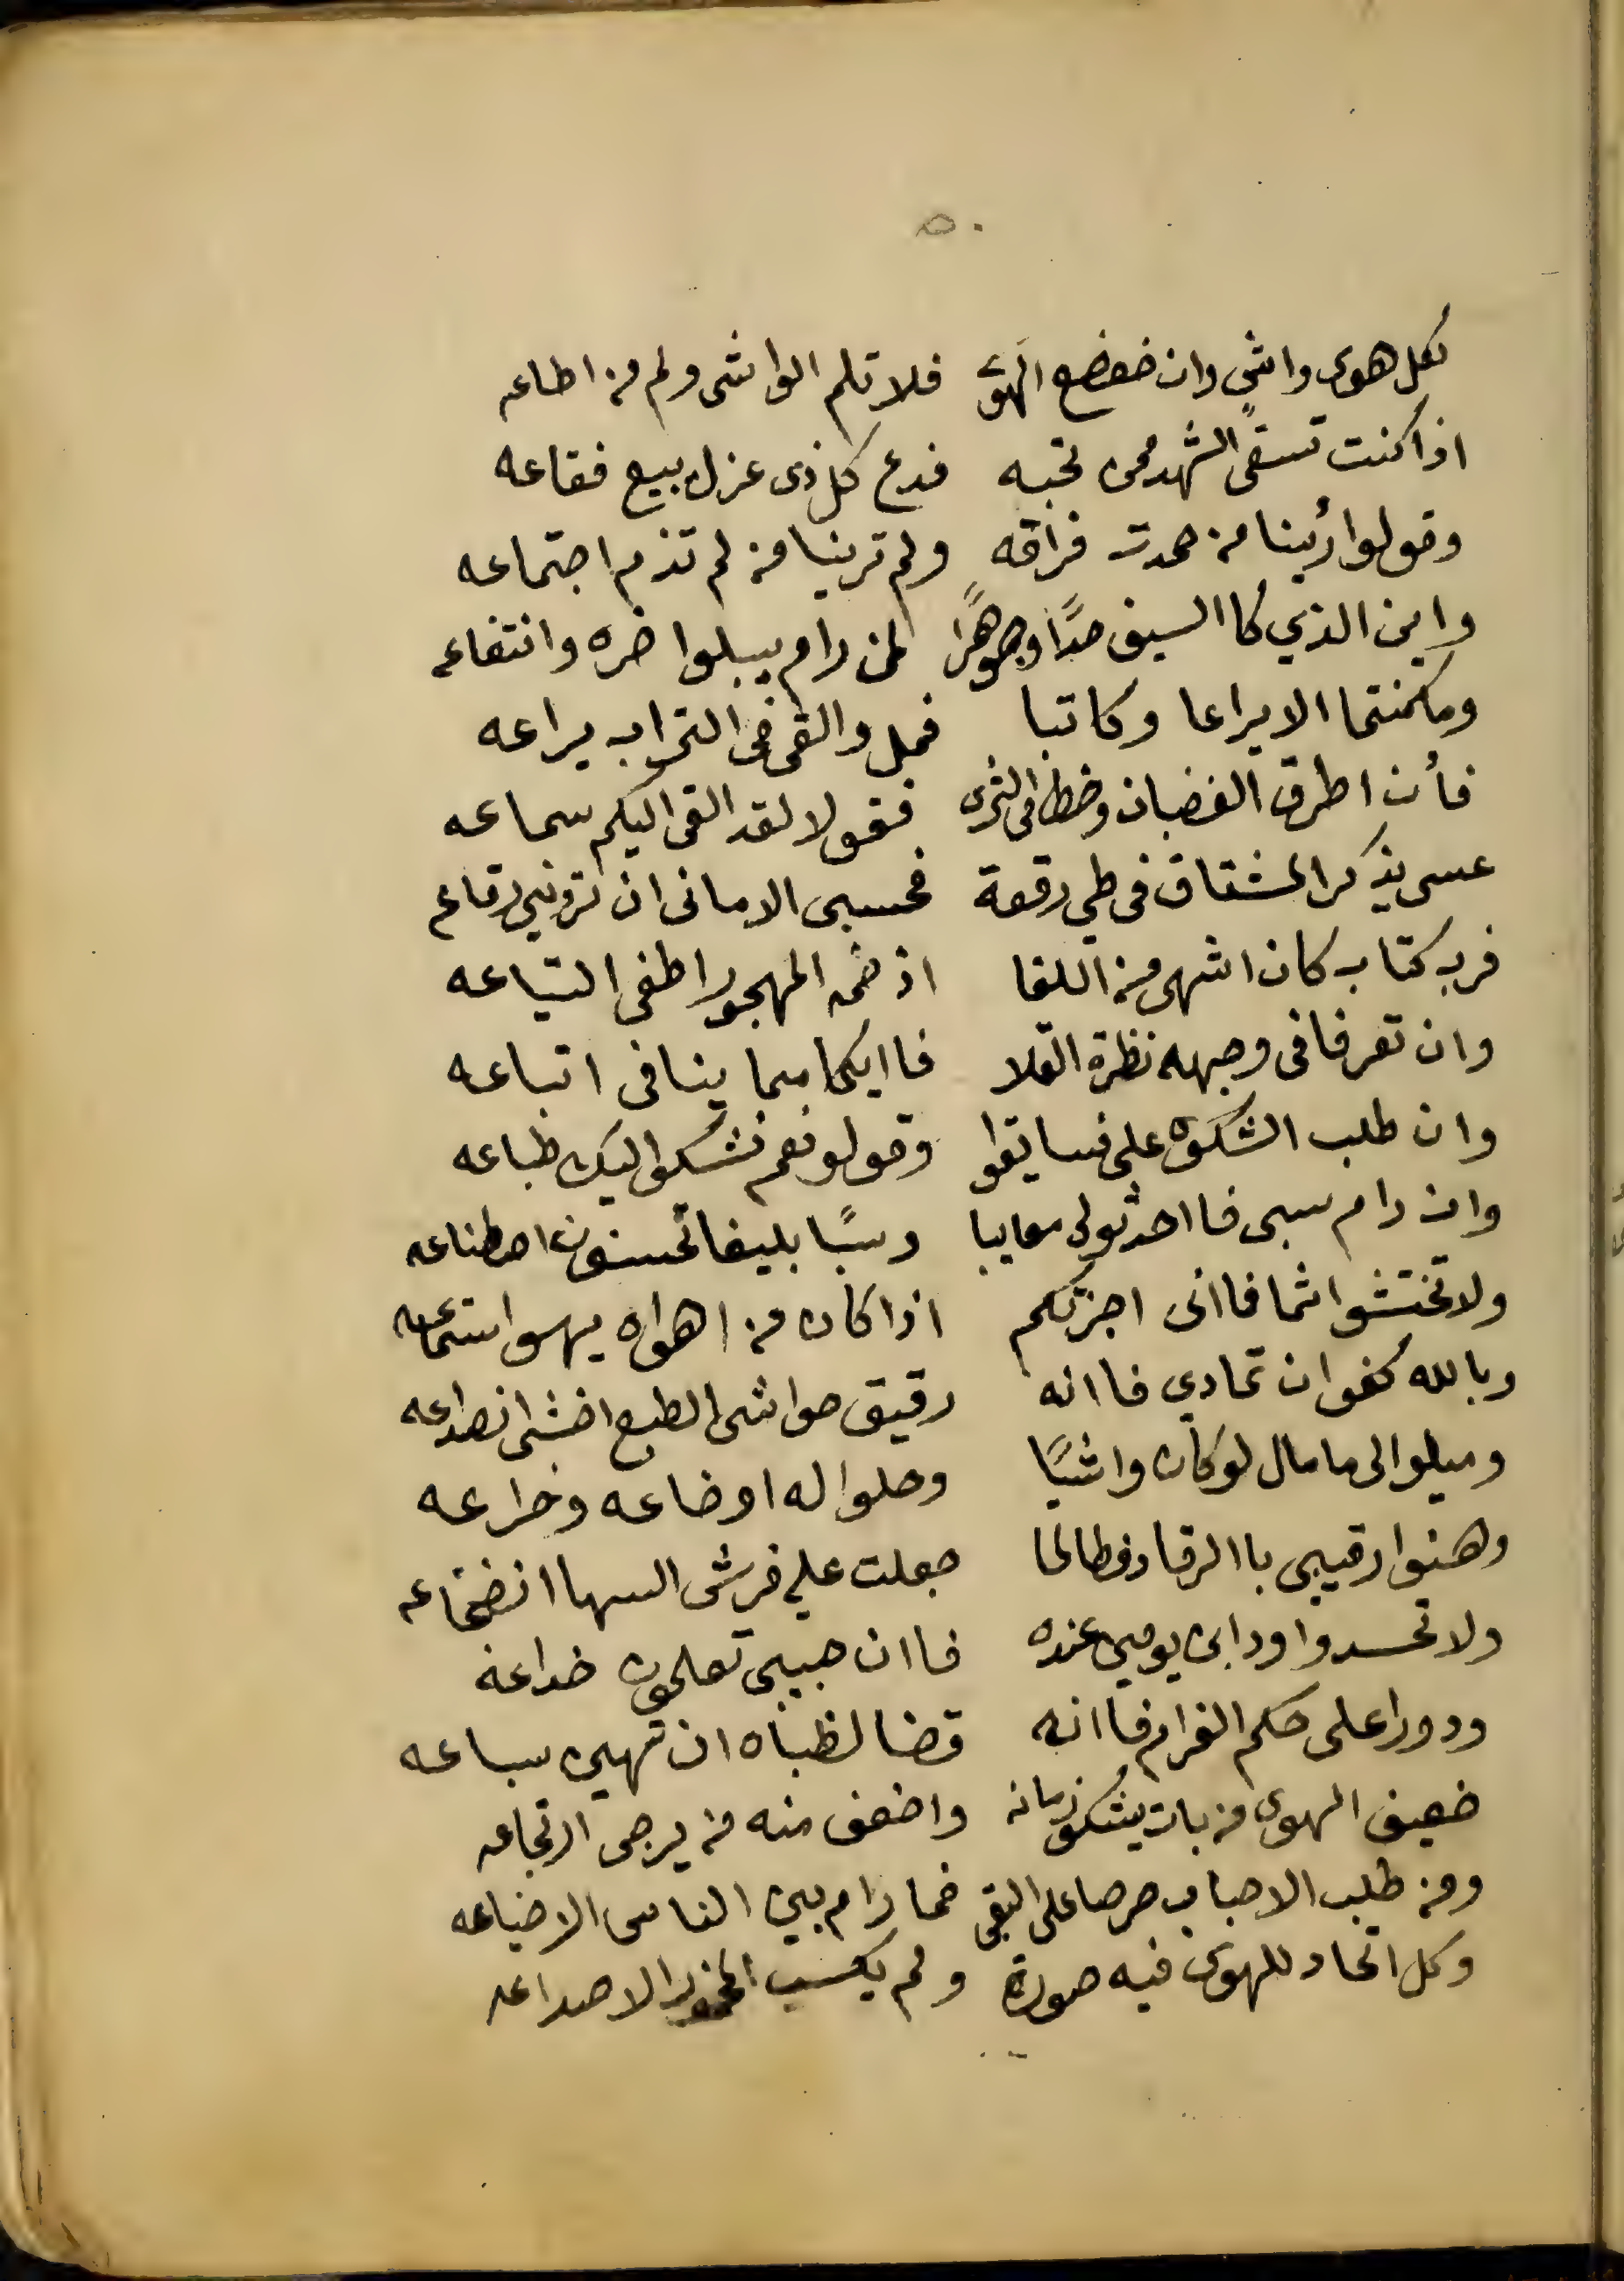 ٥٠
لكل هوى واشي وان ضعضع الهوى فلا تلم الواشي ولم من اطاعه
اذا كنت تسقى الشهد ممن تحبه فدع كل ذى عزل يبيع فقاعه
وقولوا رأينا من حمدت فراقه ولم ترينا من لم تذم اجتماعه
واين الذي كا السيف حدًا وجوهرًا لمن رام يبلوا ضره وانتفاعه
وماكنتما الا يراعا وكاتبا فمل والقى فى التراب يراعه
فأن اطرق الغضبان وخط فى الثرى فقولا لقد القى اليكم سماعه
عسى يذكر المشتاق فى طي رقعة فحسبى الامانى ان ترونى رقاعه
فرب كتاب كان اشهى من اللقا اذ ضمه المهجور اطفى التياعه
وان تعرفا فى وجهه نظرة القلا فاايكما بما ينافى اتباعه
وان طلب الشكوى على فسايقوا وقولو نعم نشكوا اليك طباعه
وان رام سبى فااحدثو لى معايبا وسبًا بليغا تحسنون اصطناعه
ولا تختشوا اثما فاانى اجزتكم اذا كان من اهواه يهوا استماعه
وبالله كفوا ان تمادي فاانه رقيق حواشى الطبع اخشى انصداعه
وميلوا الى ما مال لو كان واشيًا وحلوا له اوضاعه وخراعه
وهنوا رقيبى باالرقاد فطالما جعلت على فرش السها انضجاعه
ولا تحسدوا ودا يومين عنده فاان حبيبى تعلمون خداعه
ودورا على حكم الغرام فاانه قضا لظباه ان تهين سباعه
ضعيف الهوى من بات يشكو زمانه واضعف منه من يرجى ارتجاعه
ومن طلب الاحباب حرصا على البقى فما رام بين الناس الا ضياعه
وكل اتحاد للهوى فيه صورة ولم يكسب المخمور الا صداعه